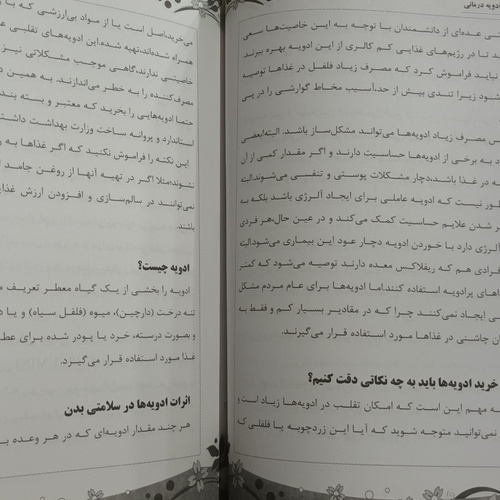 ادویه درمانی
عده‌ای از دانشمندان با توجه به این خاصیت‌ها سعی
تا در رژیم‌های غذایی کم کالری از این ادویه بهره ببرند
نباید فراموش کرد که مصرف زیاد فلفل در غذاها توصیه
شود زیرا تندی بیش از حد،آسیب مخاط گوارشی را در پی
مصرف زیاد ادویه‌ها می‌تواند مشکل‌ساز باشد. البته‌بعضی
به برخی از ادویه‌ها حساسیت دارند و اگر مقدار کمی از آن
در غذا باشد،دچار مشکلات پوستی و تنفسی می‌شوند.البته
طور نیست که ادویه عاملی برای ایجاد آلرژی باشد بلکه به
شدن علایم حساسیت کمک می‌کند و در عین حال،هر فردی
آلرژی دارد با خوردن ادویه دچار عود این بیماری می‌شود.البته
افرادی هم که ریفلاکس معده دارند توصیه می‌شود که کمتر
غذاهای پرادویه استفاده کنند.اما ادویه‌ها برای عام مردم مشکل
ایجاد نمی‌کنند چرا که در مقادیر بسیار کم و فقط به
چاشنی در غذاها مورد استفاده قرار می‌گیرند.
خرید ادویه‌ها باید به چه نکاتی دقت کنیم؟
مهم این است که امکان تقلب در ادویه‌ها زیاد است و
نمی‌توانید متوجه شوید که آیا این زردچوبه یا فلفلی که
می‌خرید،اصل است یا از مواد بی‌ارزشی که با
همراه شده‌اند،تهیه شده.این ادویه‌های تقلبی
خاصیتی ندارند،گاهی موجب مشکلاتی نیز
مصرف‌کننده را به خطر می‌اندازند. به همین
حتما ادویه‌هایی را بخرید که معتبر و بسته بند
استاندارد و پروانه ساخت وزارت بهداشت داشته
این نکته را فراموش نکنید که اگر غذاها به
نشوند؛مثلا اگر در تهیه آنها از روغن جامد
نمی‌توانند در سالم‌سازی و افزودن ارزش غذا
باشند.
ادویه چیست؟
ادویه را بخشی از یک گیاه معطر تعریف
تنه درخت (دارچین)، میوه (فلفل سیاه) و یا
و بصورت درسته، خرد یا پودر شده برای عطر
غذا مورد استفاده قرار می‌گیرد.
اثرات ادویه‌ها در سلامتی بدن
هر چند مقدار ادویه‌ای که در هر وعده